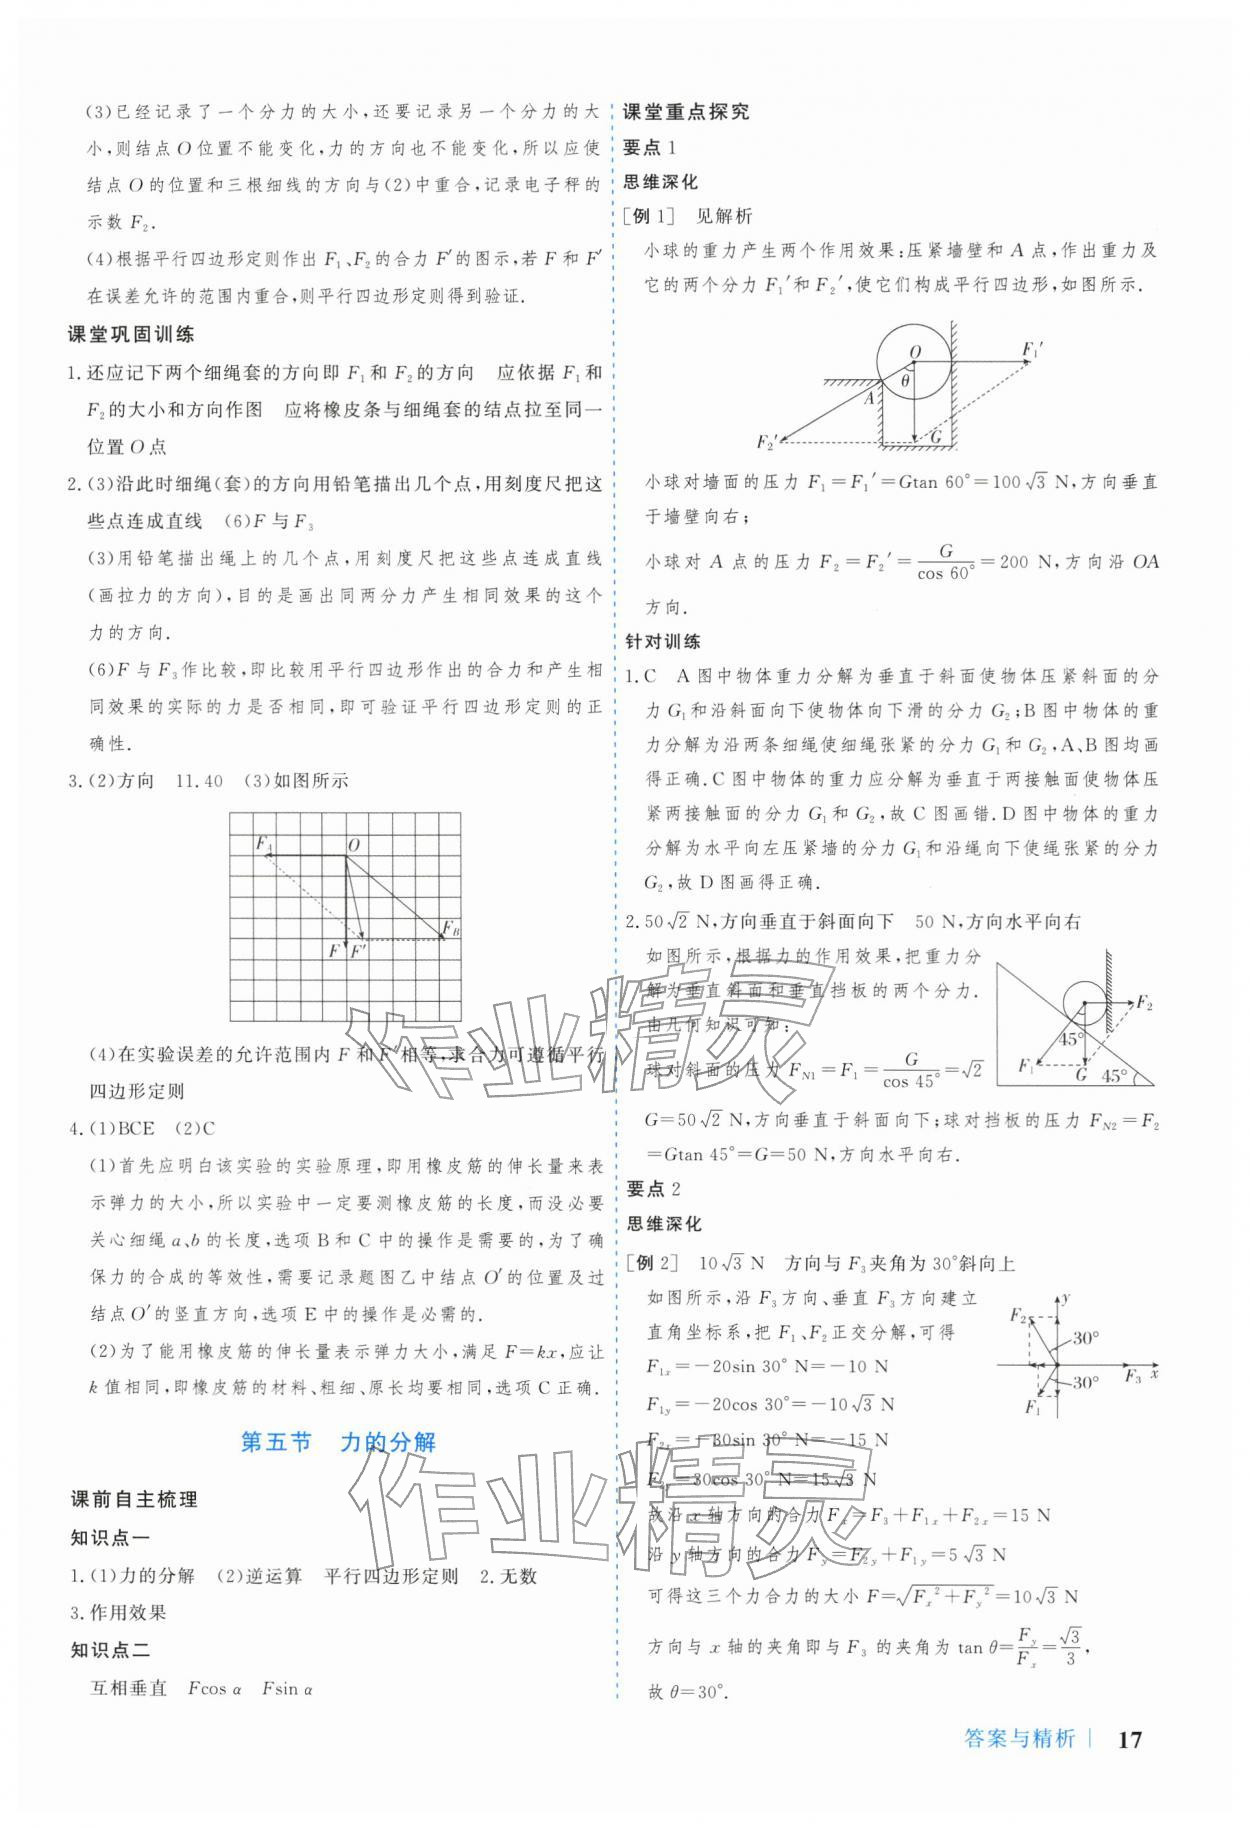 (3)已经记录了一个分力的大小,还要记录另一个分力的大
小,则结点O位置不能变化,力的方向也不能变化,所以应使
结点O的位置和三根细线的方向与(2)中重合,记录电子秤的
示数F₂.
(4)根据平行四边形定则作出F₁、F₂的合力F′的图示,若F和F′
在误差允许的范围内重合,则平行四边形定则得到验证.
课堂巩固训练
1.还应记下两个细绳套的方向即F₁和F₂的方向 应依据F₁和
F₂的大小和方向作图 应将橡皮条与细绳套的结点拉至同一
位置O点
2.(3)沿此时细绳(套)的方向用铅笔描出几个点,用刻度尺把这
些点连成直线 (6)F与F₃
(3)用铅笔描出绳上的几个点,用刻度尺把这些点连成直线
(画拉力的方向),目的是画出同两分力产生相同效果的这个
力的方向.
(6)F与F₃作比较,即比较用平行四边形作出的合力和产生相
同效果的实际的力是否相同,即可验证平行四边形定则的正
确性.
3.(2)方向 11.40 (3)如图所示
F_A O
F_B
F F′
(4)在实验误差的允许范围内F和F′相等,求合力可遵循平行
四边形定则
4.(1)BCE (2)C
(1)首先应明白该实验的实验原理,即用橡皮筋的伸长量来表
示弹力的大小,所以实验中一定要测橡皮筋的长度,而没必要
关心细绳a、b的长度,选项B和C中的操作是需要的,为了确
保力的合成的等效性,需要记录题图乙中结点O′的位置及过
结点O′的竖直方向,选项E中的操作是必需的.
(2)为了能用橡皮筋的伸长量表示弹力大小,满足F=kx,应让
k值相同,即橡皮筋的材料、粗细、原长均要相同,选项C正确.
第五节 力的分解
课前自主梳理
知识点一
1.(1)力的分解 (2)逆运算 平行四边形定则 2.无数
3.作用效果
知识点二
互相垂直 Fcos α Fsin α
课堂重点探究
要点1
思维深化
[例1] 见解析
小球的重力产生两个作用效果:压紧墙壁和A点,作出重力及
它的两个分力F₁′和F₂′,使它们构成平行四边形,如图所示.
O F₁′
θ
A
F₂′ G
小球对墙面的压力F₁=F₁′=Gtan 60°=100√3 N,方向垂直
于墙壁向右;
小球对A点的压力F₂=F₂′=G/cos 60°=200 N,方向沿OA
方向.
针对训练
1.C A图中物体重力分解为垂直于斜面使物体压紧斜面的分
力G₁和沿斜面向下使物体向下滑的分力G₂;B图中物体的重
力分解为沿两条细绳使细绳张紧的分力G₁和G₂,A、B图均画
得正确.C图中物体的重力应分解为垂直于两接触面使物体压
紧两接触面的分力G₁和G₂,故C图画错.D图中物体的重力
分解为水平向左压紧墙的分力G₁和沿绳向下使绳张紧的分力
G₂,故D图画得正确.
2.50√2 N,方向垂直于斜面向下 50 N,方向水平向右
如图所示,根据力的作用效果,把重力分
解为垂直斜面和垂直挡板的两个分力.
由几何知识可知:
球对斜面的压力F_N1=F₁=G/cos 45°=√2
G=50√2 N,方向垂直于斜面向下;球对挡板的压力F_N2=F₂
=Gtan 45°=G=50 N,方向水平向右.
F₂
45°
F₁ G 45°
要点2
思维深化
[例2] 10√3 N 方向与F₃夹角为30°斜向上
如图所示,沿F₃方向、垂直F₃方向建立
直角坐标系,把F₁、F₂正交分解,可得
F₁ₓ=-20sin 30° N=-10 N
F₁y=-20cos 30°=-10√3 N
F₂ₓ=-30sin 30° N=-15 N
F₂y=30cos 30° N=15√3 N
故沿x轴方向的合力Fₓ=F₃+F₁ₓ+F₂ₓ=15 N
沿y轴方向的合力Fy=F₂y+F₁y=5√3 N
可得这三个力合力的大小F=√(Fₓ²+Fy²)=10√3 N
方向与x轴的夹角即与F₃的夹角为tan θ=Fy/Fₓ=√3/3,
故θ=30°.
y
F₂
30°
30° F₃ x
F₁
作业精灵
作业精灵
答案与精析 17